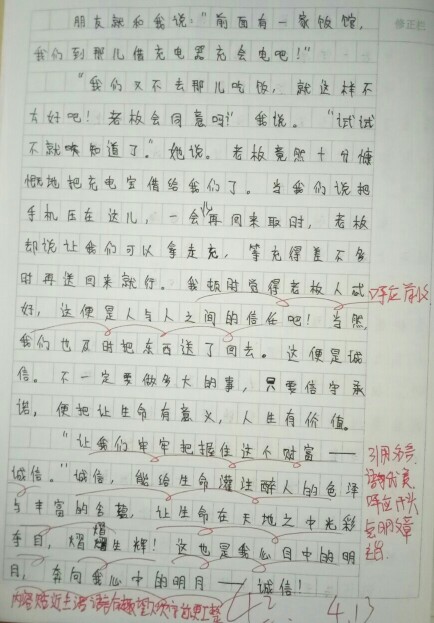 朋友就和我说："前面有一家饭馆,
我们到那儿借充电器充会电吧!"
"我们又不去那儿吃饭，就这样不
太好吧！老板会同意吗?"我说。"试试
不就知道了。"她说。老板竟然十分慷
慨地把充电宝借给我们了。当我们说把
手机压在这儿，一会儿再回来取时，老板
却说让我们可以拿走充，等充得差不多
时再送回来就行。我顿时觉得老板人或
好，这便是人与人之间的信任吧！当然,
我们也及时把东西送了回去。这便是诚
信。不一定要做多大的事，只要信守承
诺，便把让生命有意义，人生有价值。
"让我们牢牢把握住这个财富——
诚信。"诚信，能给生命灌注醉人的色泽
与丰富的名堂，让生命在天地之中光彩
夺目，熠熠生辉！这也是我心目中的明
月，奔向我心中的明月——诚信！
呼应
引用
呼应开头
点明文章
内容贴近主语
42